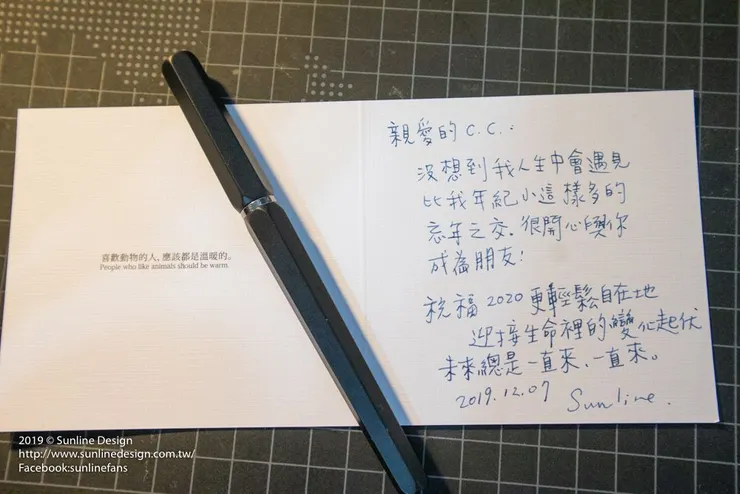 喜歡動物的人,應該都是溫暖的。
People who like animals should be warm.
親愛的 C.C.:
沒想到我人生中會遇見
比我年紀小這樣多的
忘年之交. 很開心與你
成為朋友!
祝福 2020 更輕鬆自在地
迎接生命裡的變化起伏
未來總是一直來、一直來。
2019.12.07 Sunline.
2019 © Sunline Design
http://www.sunlinedesign.com.tw/
Facebook:sunlinefans